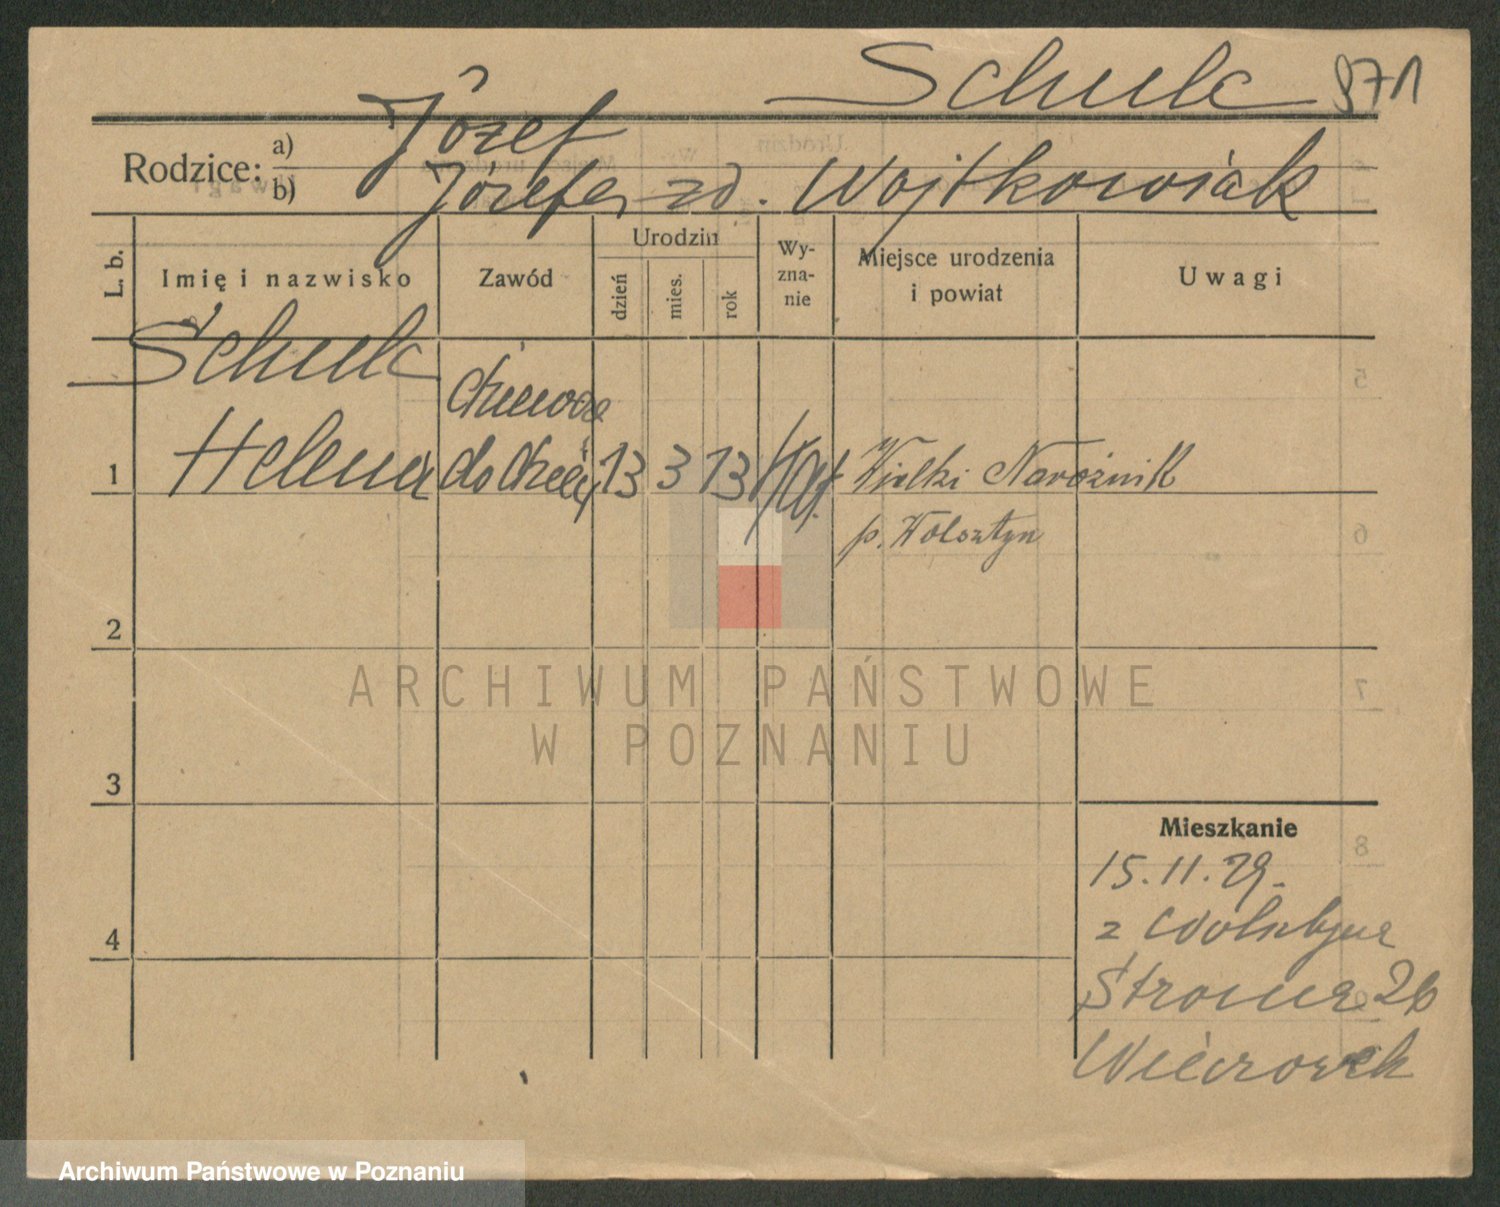 Schulc 971
Rodzice: a) Józef
b) Józefa zd. Wojtkowiak
L. b.
Imię i nazwisko
Zawód
Urodzin
dzień
mies.
rok
Wy-
zna-
nie
Miejsce urodzenia
i powiat
Uwagi
Schulc
Helena
do
1
13 3 13
kat.
Wielki Narożnik
p. Wolsztyn
2
3
4
Mieszkanie
15.11.29.
z Wolsztyna
Stroma 26
Wieczorek
5
6
7
8
ARCHIWUM PAŃSTWOWE
W POZNANIU
Archiwum Państwowe w Poznaniu